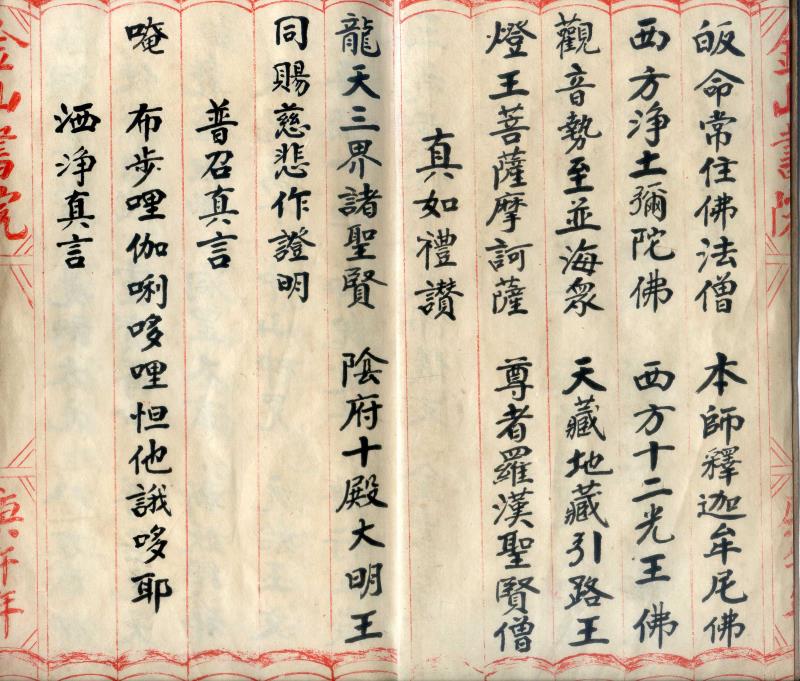 皈命常住佛法僧　本師釋迦牟尼佛
西方净土彌陀佛　西方十二光王佛
觀音勢至並海衆　天藏地藏引路王
燈王菩薩摩訶薩　尊者羅漢聖賢僧
真如禮讃
龍天三界諸聖賢　陰府十殿大明王
同賜慈悲作證明
普召真言
唵　布步哩伽唎哆哩怛他誐哆耶
洒净真言
金山書院
庚午年